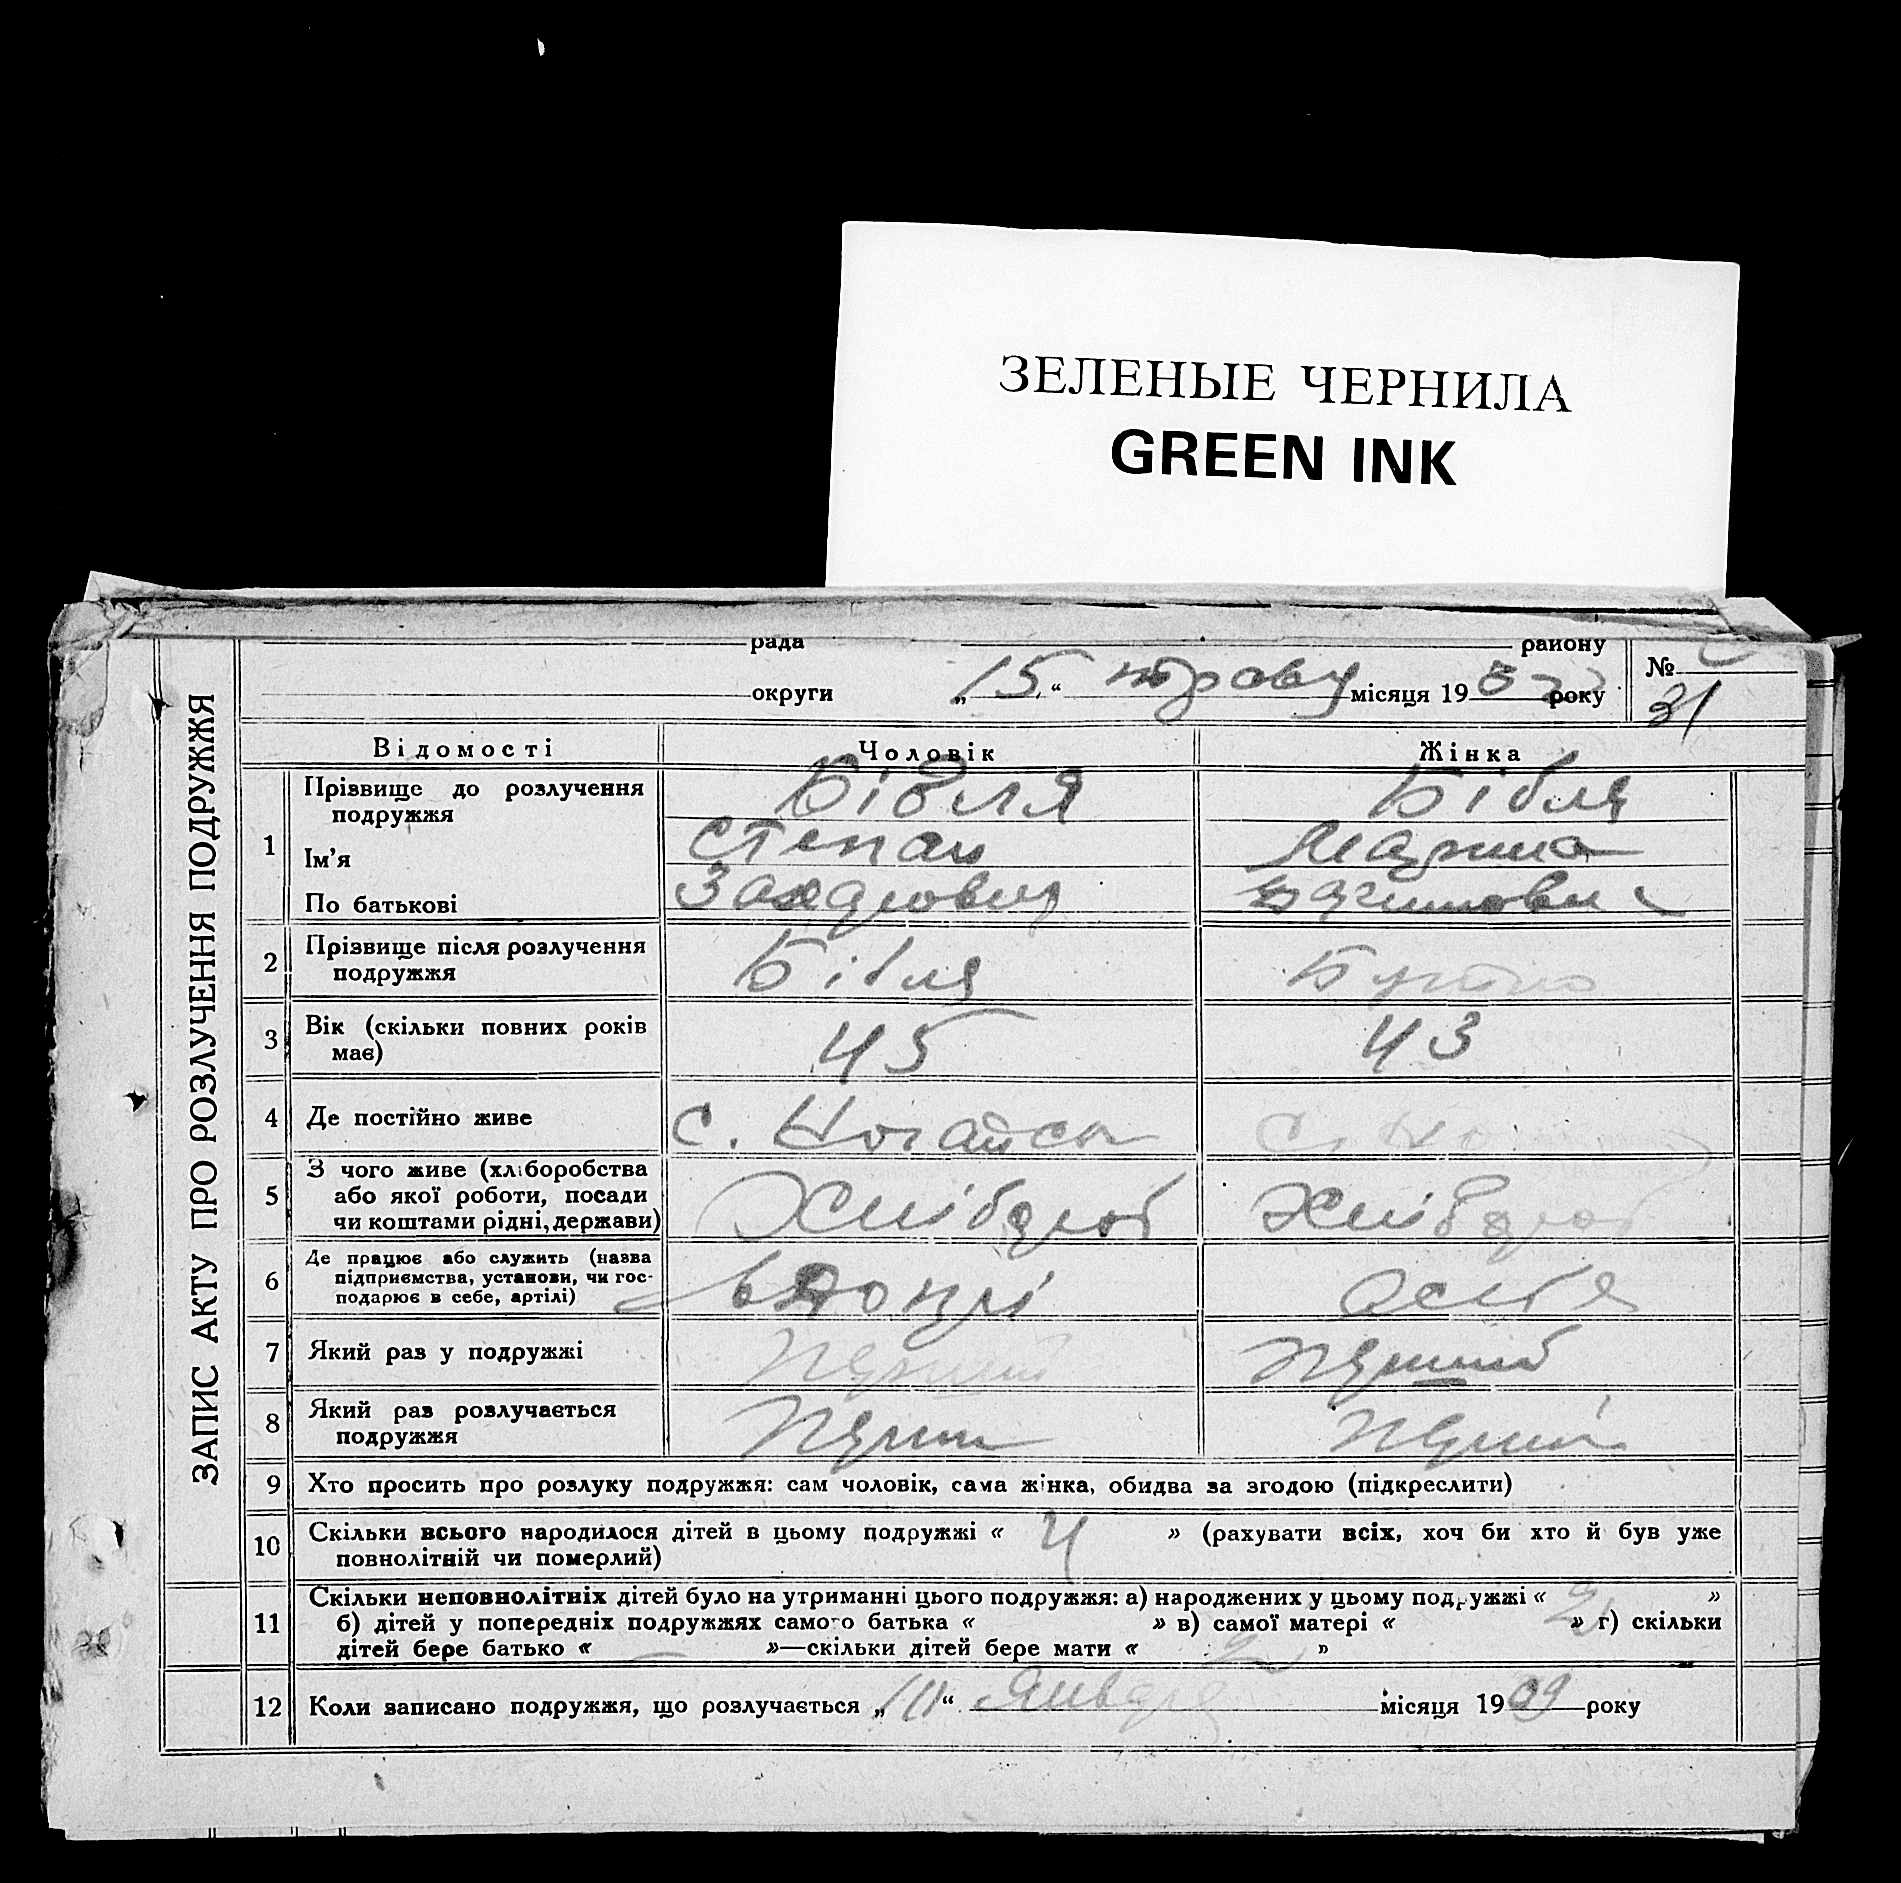 ЗЕЛЕНЫЕ ЧЕРНИЛА
GREEN INK
ЗАПИС АКТУ ПРО РОЗЛУЧЕННЯ ПОДРУЖЖЯ
рада району №
округи „15“ траву місяця 19 року 31
Відомості Чоловік Жінка
1 Прізвище до розлучення подружжя Бібля Бібля
Ім’я Степан Марина
По батькові
2 Прізвище після розлучення подружжя Бібля
3 Вік (скільки повних років має) 45 43
4 Де постійно живе с. Ногайськ
5 З чого живе (хліборобства
або якої роботи, посади
чи коштами рідні, держави) Хлібороб Хлібороб
6 Де працює або служить (назва
підприємства, установи, чи гос-
подарює в себе, артілі)
7 Який раз у подружжі
8 Який раз розлучається
подружжя
9 Хто просить про розлуку подружжя: сам чоловік, сама жінка, обидва за згодою (підкреслити)
10 Скільки всього народилося дітей в цьому подружжі « 4 » (рахувати всіх, хоч би хто й був уже
повнолітній чи померлий)
11 Скільки неповнолітніх дітей було на утриманні цього подружжя: а) народжених у цьому подружжі « 2 »
б) дітей у попередніх подружжях самого батька « » в) самої матері « » г) скільки
дітей бере батько « — »—скільки дітей бере мати « 2 »
12 Коли записано подружжя, що розлучається „10“ Января місяця 1909 року